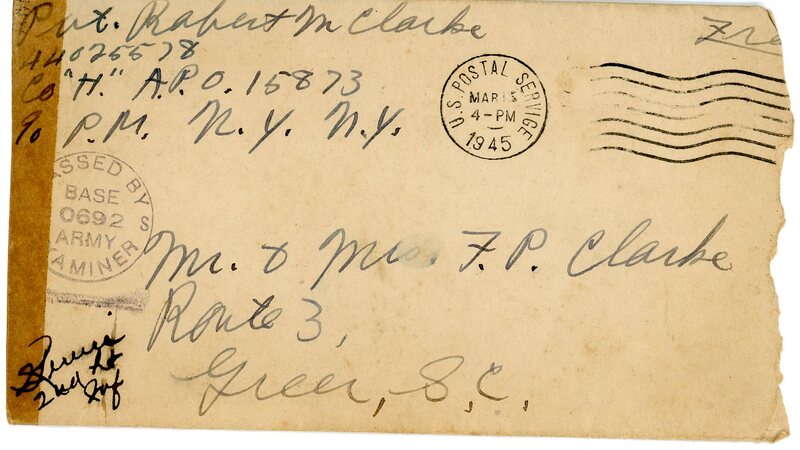 Pvt. Robert M Clarke
44025578
Co "H." A.P.O. 15873
% P.M. N.Y. N.Y.
U.S. POSTAL SERVICE
MAR 13
4-PM
1945
ASSED BY
BASE
0692
ARMY
AMINER
S
Mr. & Mrs. F.P. Clarke
Route 3,
Greer, S.C.
2nd Lt
Inf